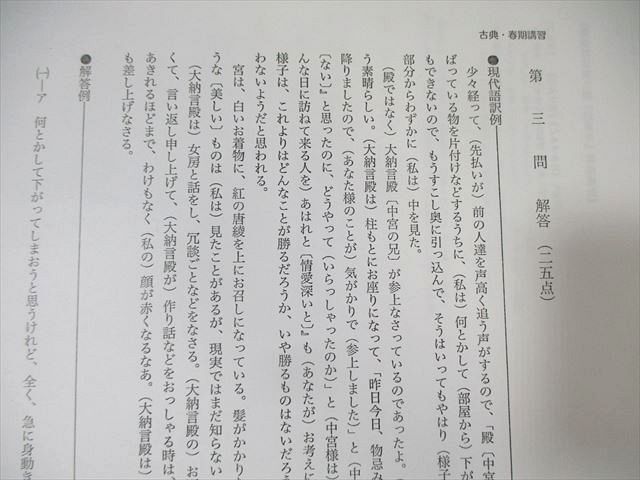 古典・春期講習
第三問 解答(二五点)
●現代語訳例
少々経って、(先払いが)前の人達を声高く追う声がするので、「殿〔中宮
ばっている物を片付けなどするうちに、(私は)何とかして(部屋から)下が
もできないので、もうすこし奥に引っ込んで、そうはいってもやはり(様子
部分からわずかに(私は)中を見た。
(殿ではなく)大納言殿〔中宮の兄〕が参上なさっているのであったよ。(
う素晴らしい。(大納言殿は)柱もとにお座りになって、「昨日今日、物忌み
降りましたので、(あなた様のことが)気がかりで(参上しました)」と(中
〔ない〕』と思ったのに、どうやって(いらっしゃったのか)」と(中宮様は)
んな日に訪ねて来る人を)あはれと〔情愛深いと〕』も(あなたが)お考えに
様子は、これよりはどんなことが勝るだろうか、いや勝るものはないだろう
わないようだと思われる。
宮は、白いお着物に、紅の唐綾を上にお召しになっている。髪がかかり
うな〔美しい〕ものは(私は)見たことがあるが、現実ではまだ知らない
(大納言殿は)女房と話をし、冗談ごとなどをなさる。(大納言殿の)お
くて、言い返し申し上げて、(大納言殿が)作り話などをおっしゃる時は、
あきれるほどまで、わけもなく(私の)顔が赤くなるなあ。(大納言殿は)
も差し上げなさる。
●解答例
(一)ーア 何とかして下がってしまおうと思うけれど、全く、急に身動き